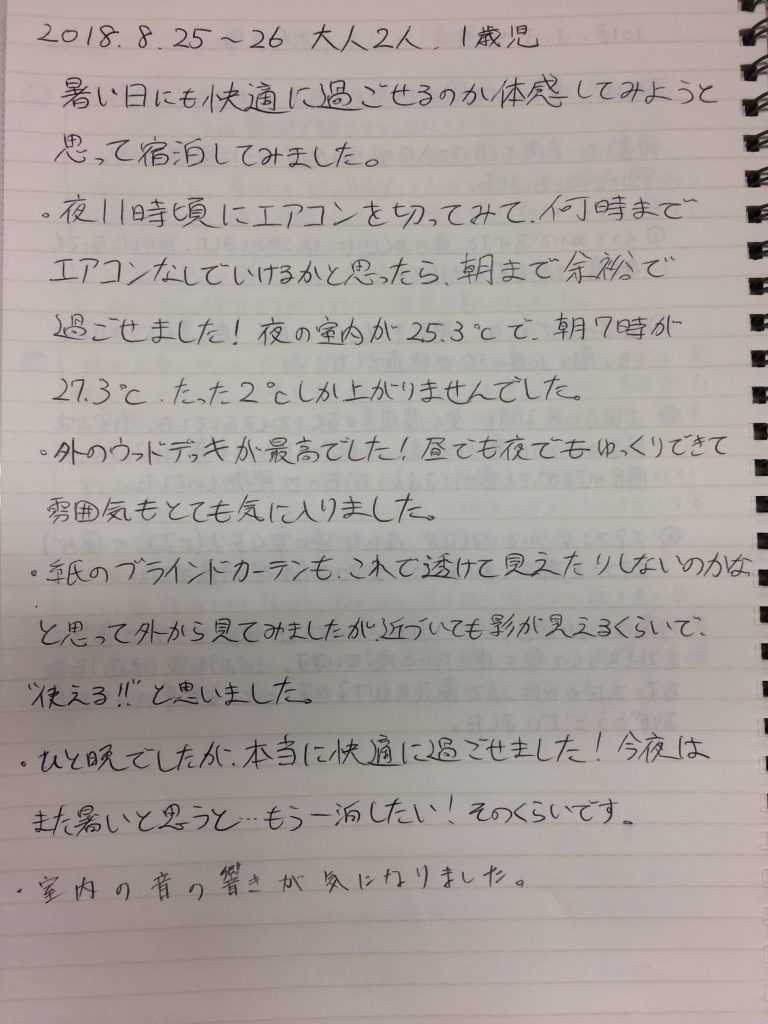 2018.8.25～26 大人2人、1歳児
暑い日にも快適に過ごせるのか体感してみようと
思って宿泊してみました。
・夜11時頃にエアコンを切ってみて、何時まで
エアコンなしでいけるかと思ったら、朝まで余裕で
過ごせました！夜の室内が25.3℃で、朝7時が
27.3℃、たった2℃しか上がりませんでした。
・外のウッドデッキが最高でした！昼でも夜でもゆっくりできて
雰囲気もとても気に入りました。
・のブラインドカーテンも、これで透けて見えたりしないのかな
と思って外から見てみましたが、近づいても影が見えるくらいで、
"使える!!"と思いました。
・ひと晩でしたが、本当に快適に過ごせました！今夜は
また暑いと思うと…もう一泊したい！そのくらいです。
・室内の音の響きが気になりました。